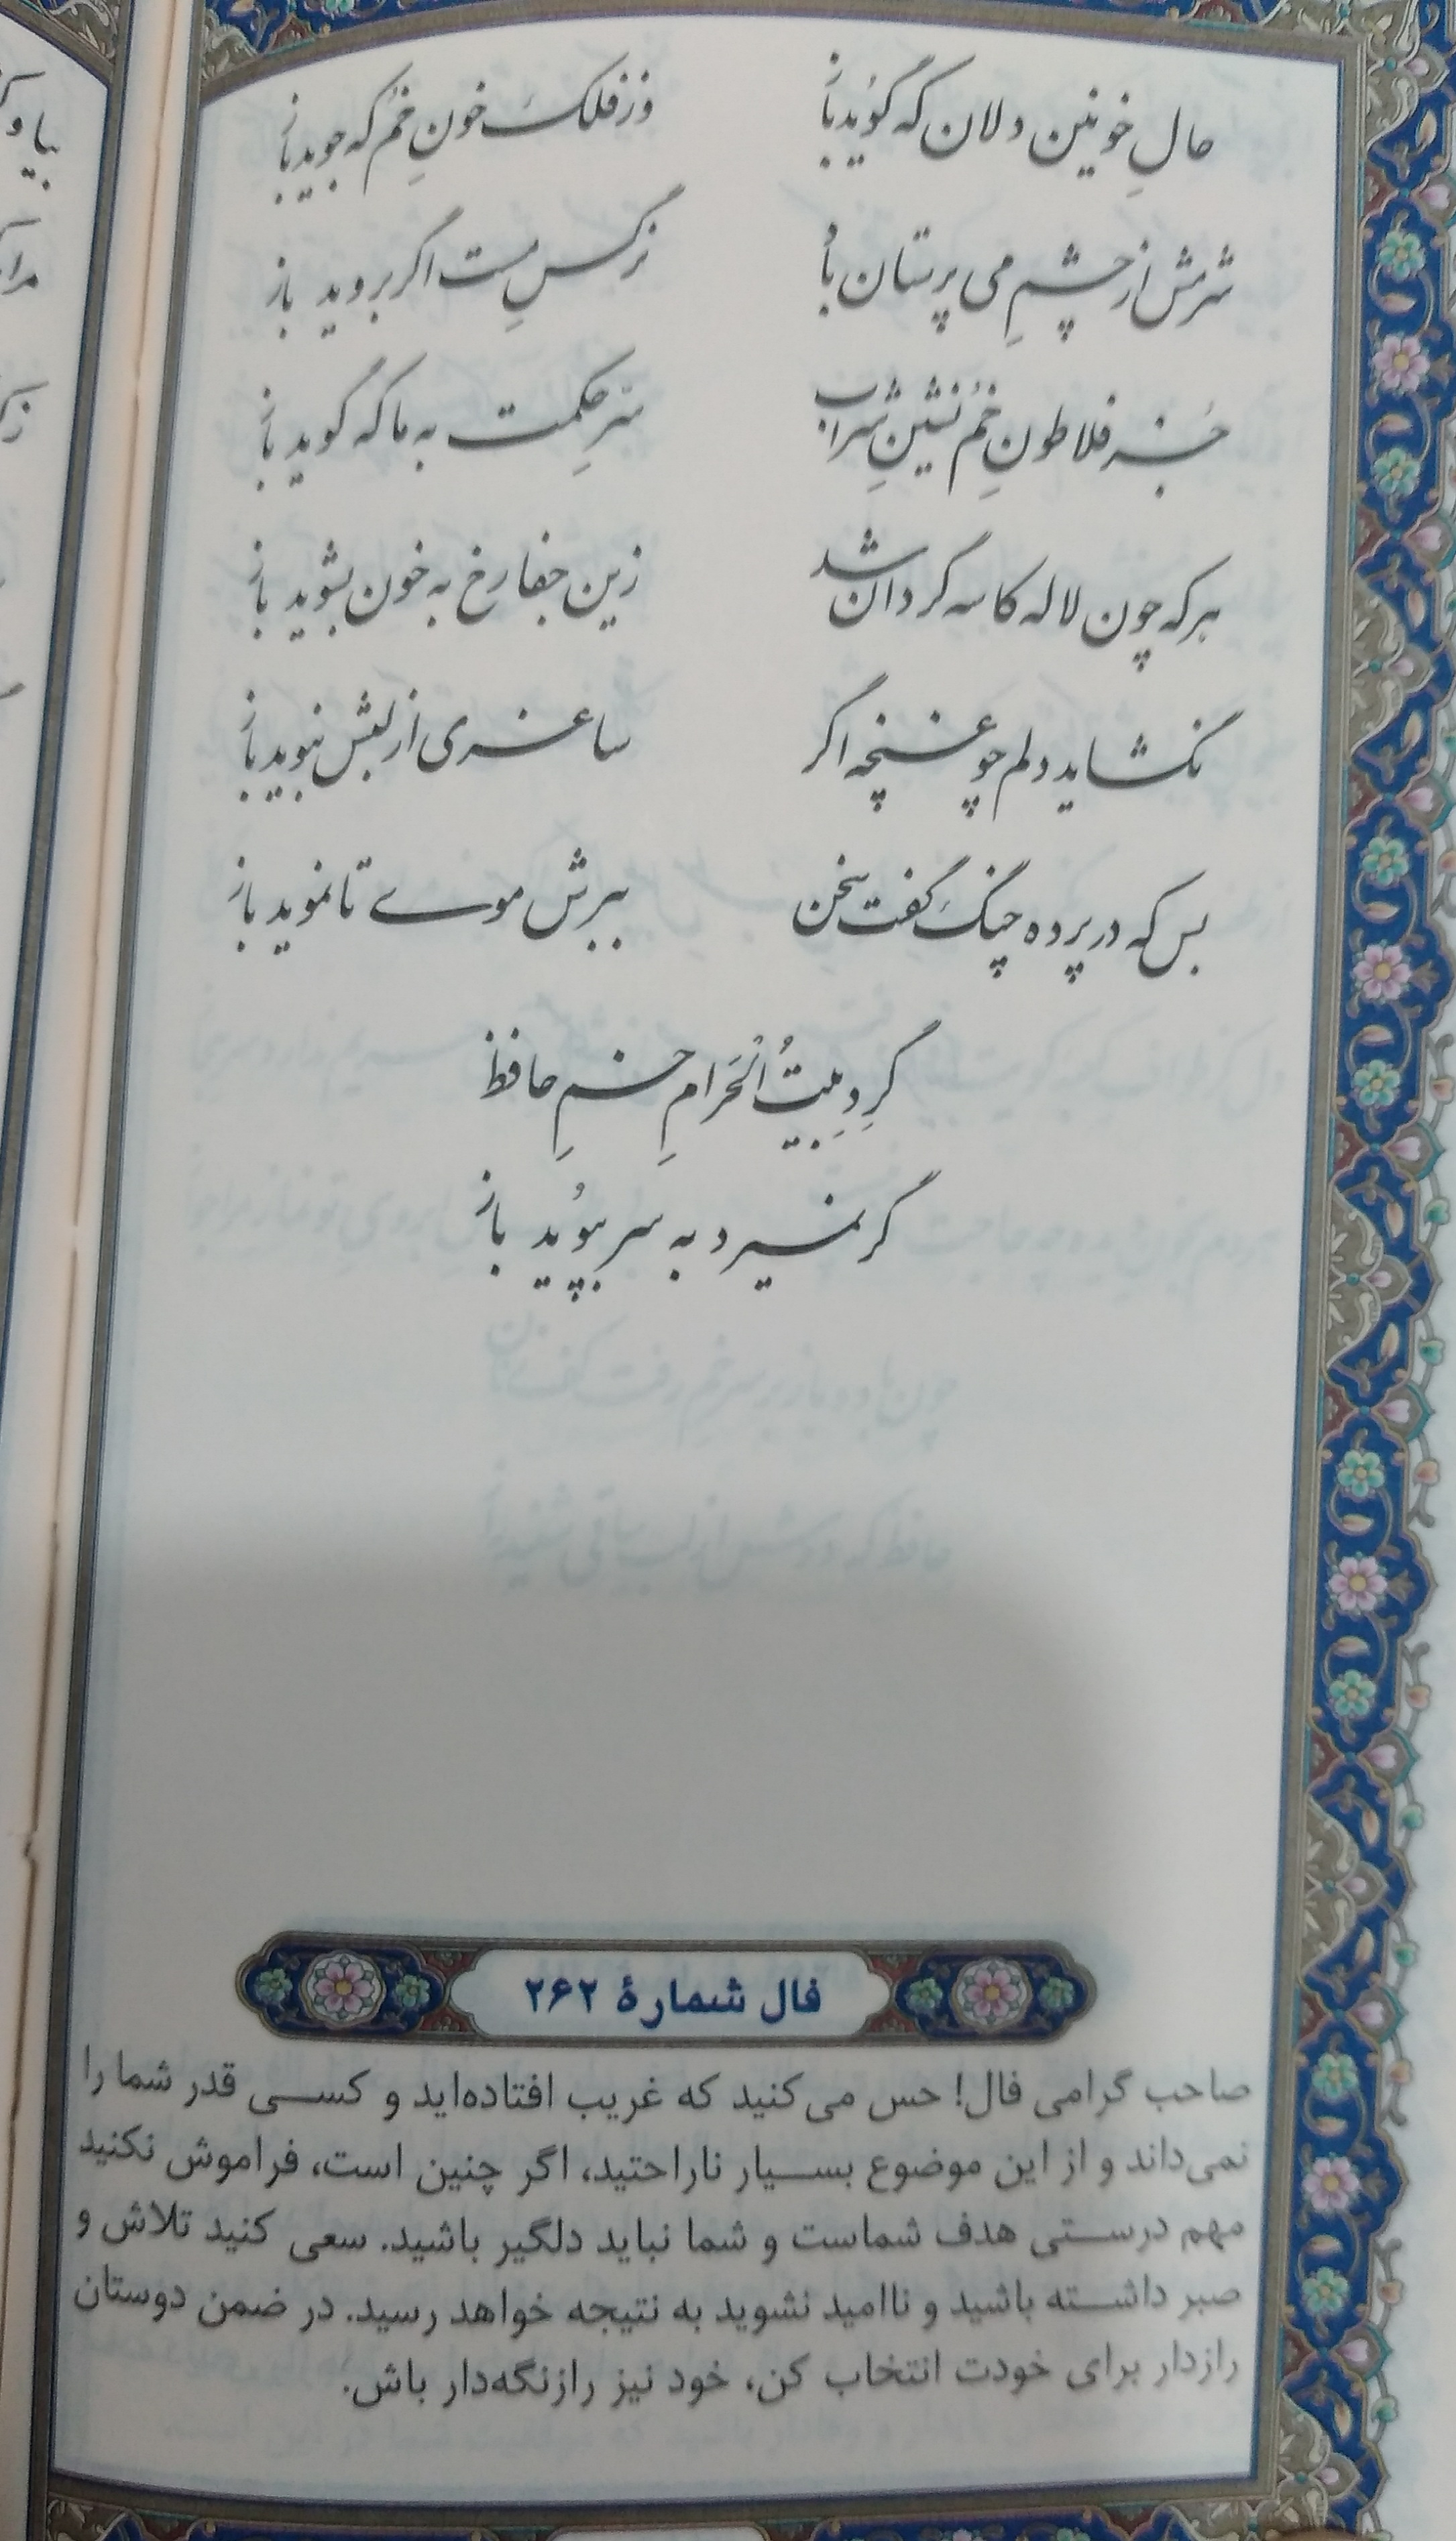 حالِ خونین دلان که گوید باز
وز فلک خونِ خُم که جوید باز
شرمش از چشمِ می پرستان باد
نرگسِ مست اگر بروید باز
جز فلاطونِ خُم نشینِ شراب
سرِّ حکمت به ما که گوید باز
هر که چون لاله کاسه گردان شد
زین جفا رخ به خون بشوید باز
نگشاید دلم چو غنچه اگر
ساغری از لبش نبوید باز
بس که در پرده چنگ گفت سخن
ببرش موی تا نموید باز
گِردِ بیتُ الْحَرامِ خمِ حافظ
گر نمیرد به سر بپُوید باز
فال شمارهٔ ۲۶۲
صاحب گرامی فال! حس می‌کنید که غریب افتاده‌اید و کسی قدر شما را
نمی‌داند و از این موضوع بسیار ناراحتید، اگر چنین است، فراموش نکنید
مهم درستی هدف شماست و شما نباید دلگیر باشید. سعی کنید تلاش و
صبر داشته باشید و ناامید نشوید به نتیجه خواهد رسید. در ضمن دوستان
رازدار برای خودت انتخاب کن، خود نیز رازنگه‌دار باش.